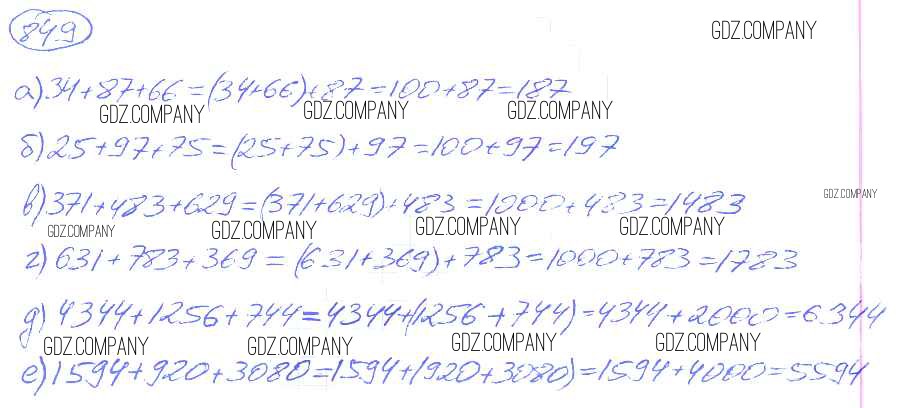 849
GDZ.COMPANY
а) 34+87+66=(34+66)+87=100+87=187
GDZ.COMPANY GDZ.COMPANY GDZ.COMPANY
б) 25+97+75=(25+75)+97=100+97=197
в) 371+483+629=(371+629)+483=1000+483=1483
GDZ.COMPANY
GDZ.COMPANY GDZ.COMPANY GDZ.COMPANY GDZ.COMPANY
г) 631+783+369=(631+369)+783=1000+783=1783
д) 4344+1256+744=4344+(1256+744)=4344+2000=6344
GDZ.COMPANY GDZ.COMPANY GDZ.COMPANY GDZ.COMPANY
е) 1594+920+3080=1594+(920+3080)=1594+4000=5594